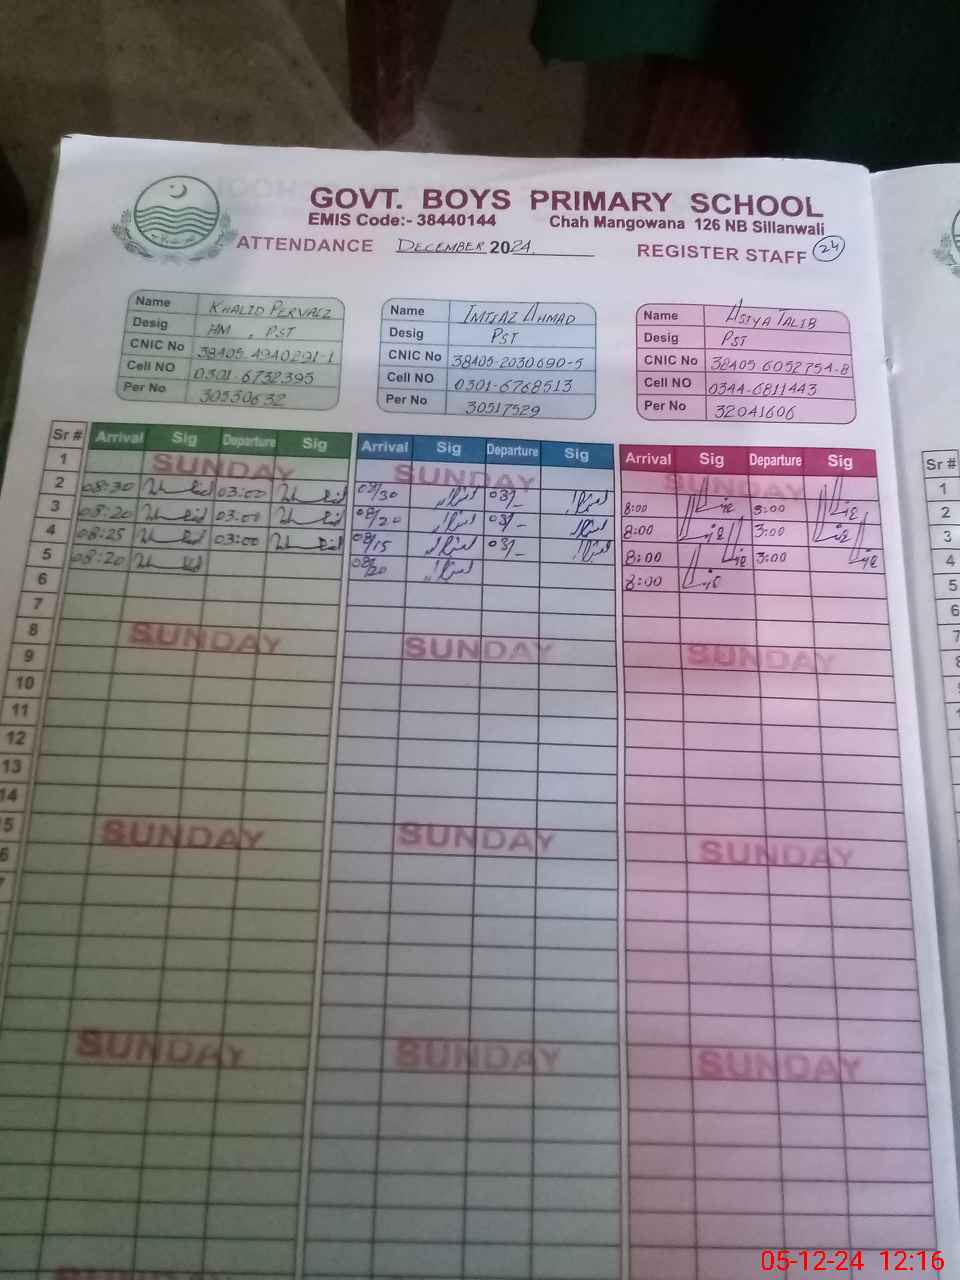 GOVT. BOYS PRIMARY SCHOOL
EMIS Code:- 38440144 Chah Mangowana 126 NB Sillanwali
ATTENDANCE DECEMBER 2024. REGISTER STAFF 24
Name KHALID PERVAIZ
Desig HM , PST
CNIC No 38405-4940291-1
Cell NO 0301-6732395
Per No 30530632
Name IMTIAZ AHMAD
Desig PST
CNIC No 38405-2030690-5
Cell NO 0301-6768513
Per No 30517529
Name ASIYA TALIB
Desig PST
CNIC No 38405 6052754-8
Cell NO 0344-6811443
Per No 32041606
Sr # Arrival Sig Departure Sig Arrival Sig Departure Sig Arrival Sig Departure Sig Sr #
1 SUNDAY SUNDAY SUNDAY 1
2 08:30 03:00 08/30 03/- 8:00 3:00 2
3 08:20 03:00 08/20 03/- 8:00 3:00 3
4 08:25 03:00 08/15 03/- 8:00 3:00 4
5 08:20 08/20 8:00 5
6 6
7 7
8 SUNDAY SUNDAY SUNDAY 8
9
10
11
12
13
14
15 SUNDAY SUNDAY SUNDAY
SUNDAY SUNDAY SUNDAY
SUNDAY
05-12-24 12:16